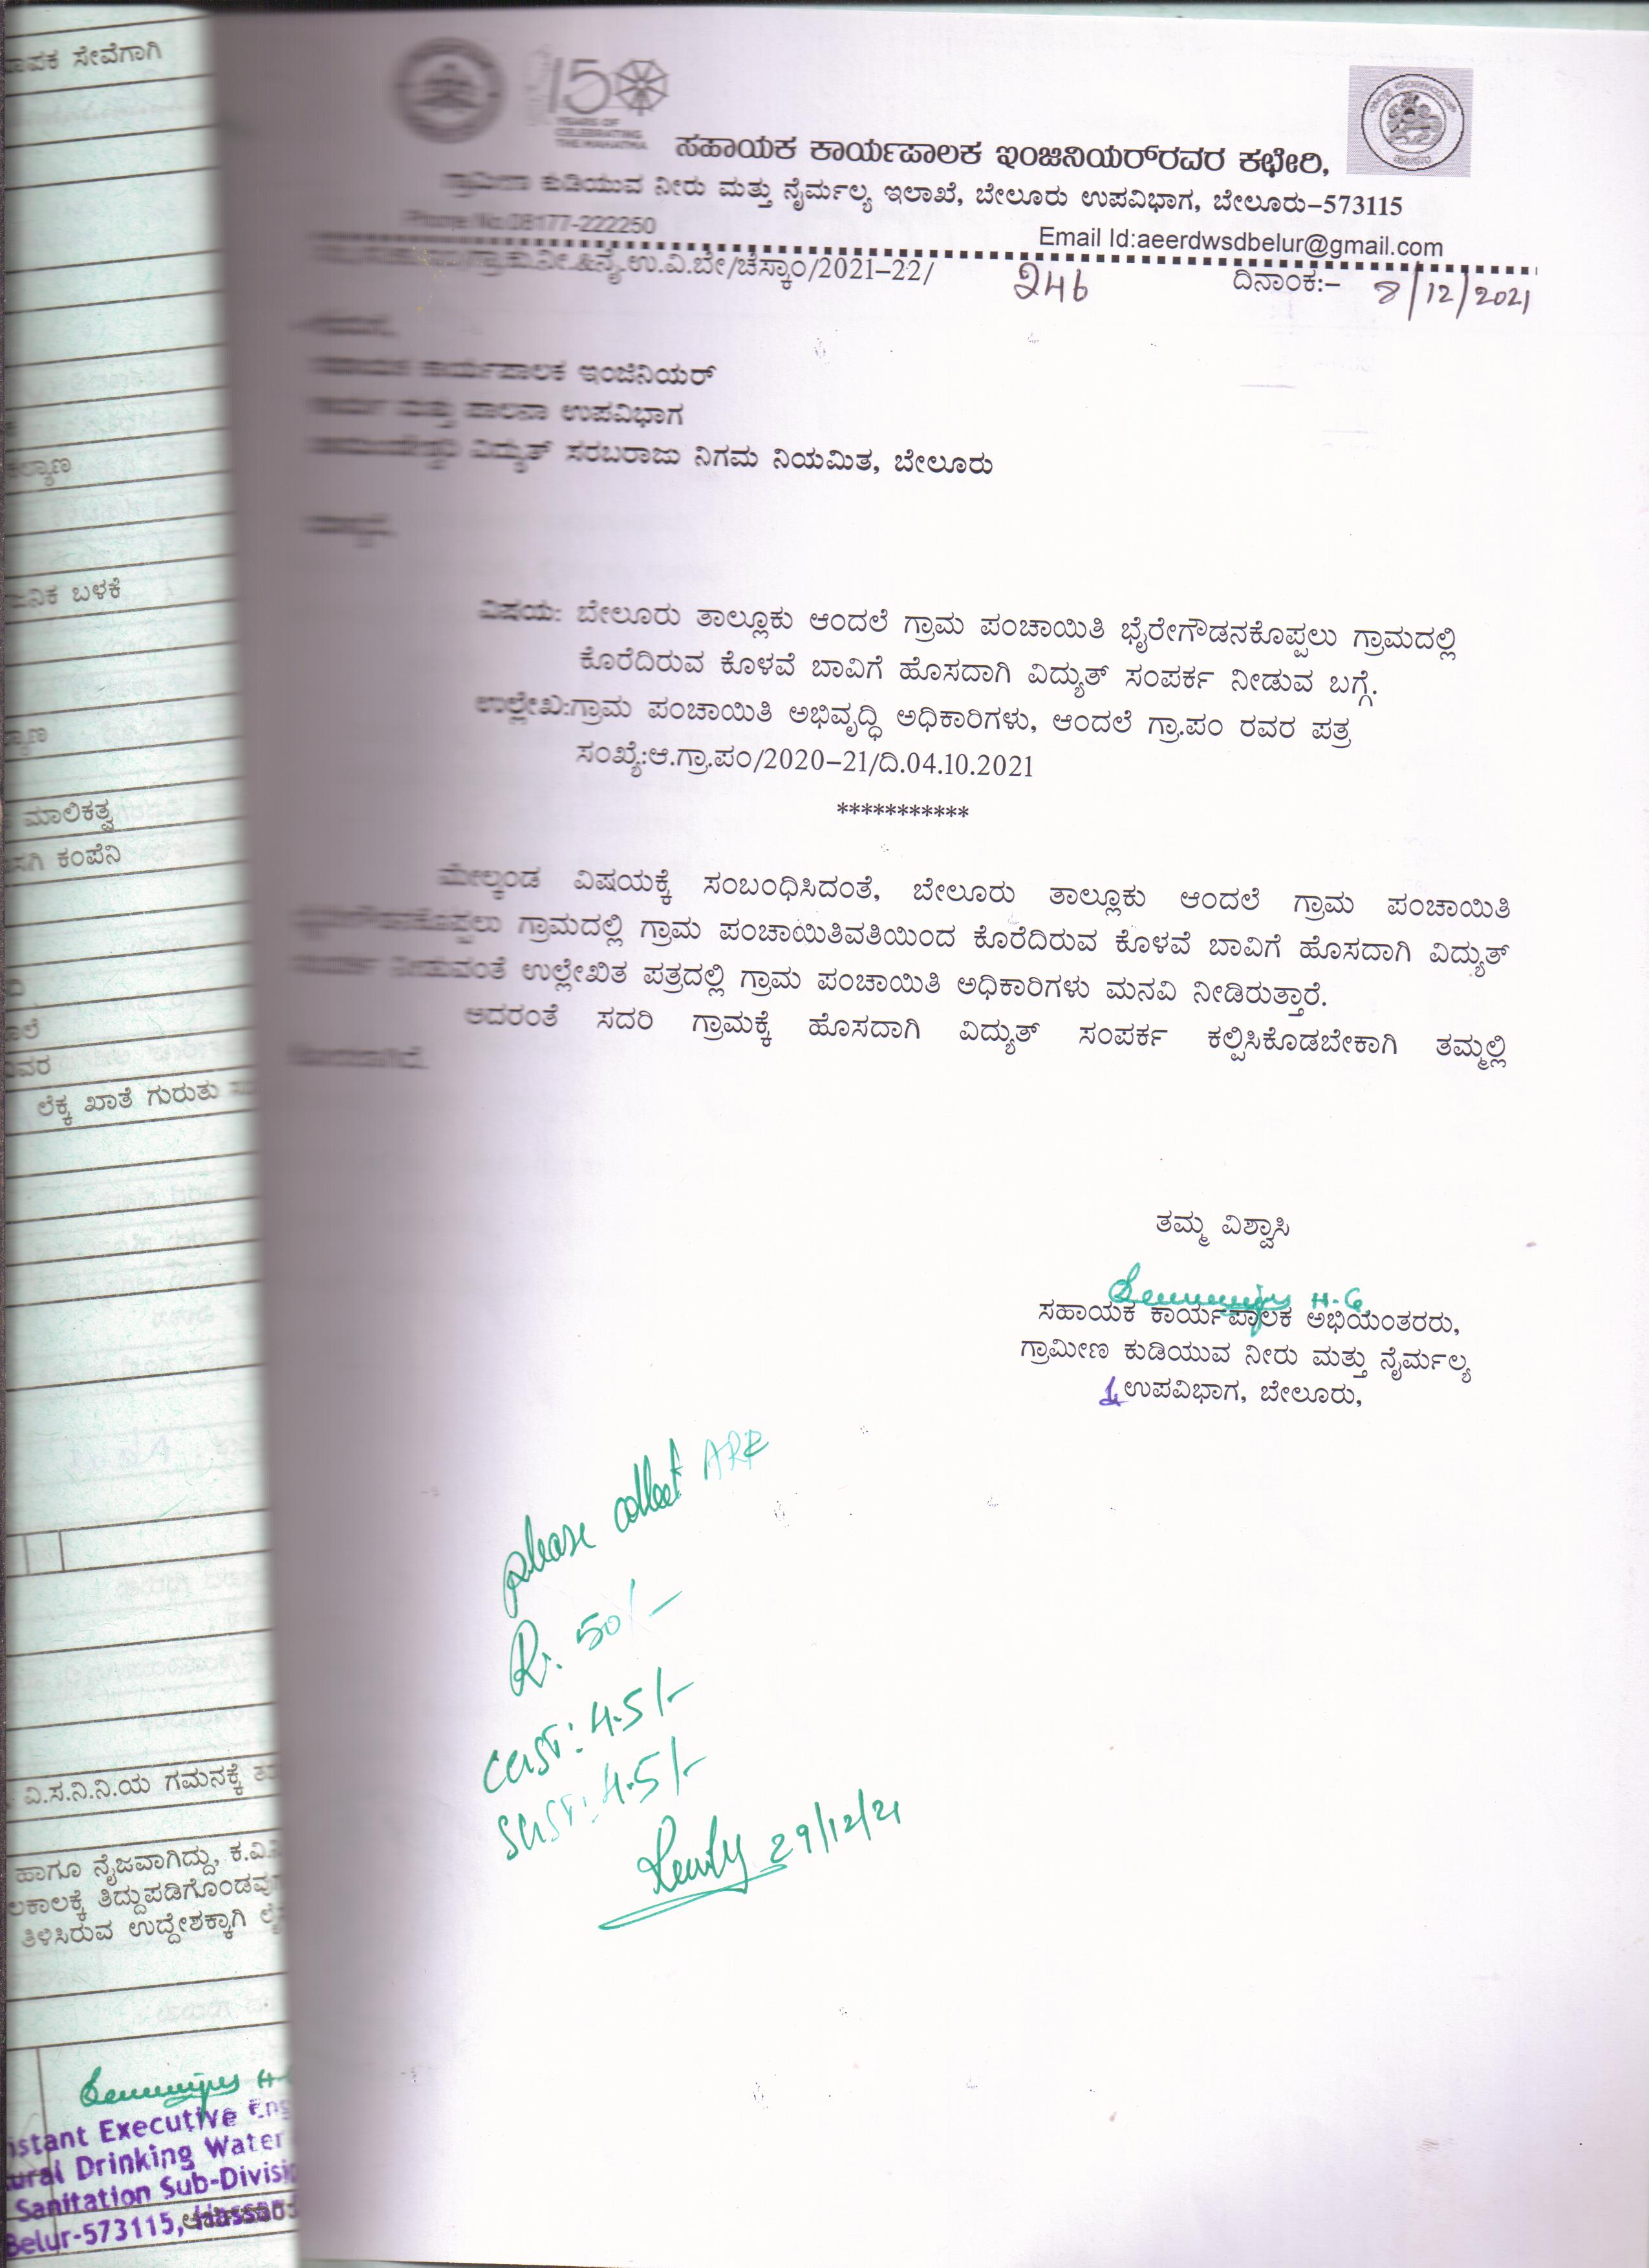 ಾಪಕ ಸೇವೆಗಾಗಿ
ಲ್ಯಾಣ
ಜನಿಕ ಬಳಕೆ
ಮಾಲಿಕತ್ವ
ಸಗಿ ಕಂಪೆನಿ
ಾಲೆ
ವರ
ಲೆಕ್ಕ ಖಾತೆ ಗುರುತು
ವಿ.ಸ.ನಿ.ನಿ.ಯ ಗಮನಕ್ಕೆ
ಹಾಗೂ ನೈಜವಾಗಿದ್ದು, ಕ.ವಿ.
ಲಕಾಲಕ್ಕೆ ತಿದ್ದುಪಡಿಗೊಂಡವು
ತಿಳಿಸಿರುವ ಉದ್ದೇಶಕ್ಕಾಗಿ
istant Executive Eng
ural Drinking Water
Sanitation Sub-Divisi
Belur-573115, Hassan
150
YEARS OF
CELEBRATING
THE MAHATMA
ಸಹಾಯಕ ಕಾರ್ಯಪಾಲಕ ಇಂಜನಿಯರ್‌ರವರ ಕಛೇರಿ,
ಗ್ರಾಮೀಣ ಕುಡಿಯುವ ನೀರು ಮತ್ತು ನೈರ್ಮಲ್ಯ ಇಲಾಖೆ, ಬೇಲೂರು ಉಪವಿಭಾಗ, ಬೇಲೂರು–573115
Phone No.08177-222250
Email Id:aeerdwsdbelur@gmail.com
ಗ್ರಾ.ಕು.ನೀ.&ನೈ.ಉ.ವಿ.ಬೇ/ಚೆಸ್ಕಾಂ/2021–22/ 246 ದಿನಾಂಕ:– 8/12/2021
ಕಾರ್ಯಪಾಲಕ ಇಂಜಿನಿಯರ್
ಮತ್ತು ಪಾಲನಾ ಉಪವಿಭಾಗ
ವಿದ್ಯುತ್ ಸರಬರಾಜು ನಿಗಮ ನಿಯಮಿತ, ಬೇಲೂರು
ವಿಷಯ: ಬೇಲೂರು ತಾಲ್ಲೂಕು ಆಂದಲೆ ಗ್ರಾಮ ಪಂಚಾಯಿತಿ ಭೈರೇಗೌಡನಕೊಪ್ಪಲು ಗ್ರಾಮದಲ್ಲಿ
ಕೊರೆದಿರುವ ಕೊಳವೆ ಬಾವಿಗೆ ಹೊಸದಾಗಿ ವಿದ್ಯುತ್ ಸಂಪರ್ಕ ನೀಡುವ ಬಗ್ಗೆ.
ಉಲ್ಲೇಖ:ಗ್ರಾಮ ಪಂಚಾಯಿತಿ ಅಭಿವೃದ್ಧಿ ಅಧಿಕಾರಿಗಳು, ಆಂದಲೆ ಗ್ರಾ.ಪಂ ರವರ ಪತ್ರ
ಸಂಖ್ಯೆ:ಆ.ಗ್ರಾ.ಪಂ/2020–21/ದಿ.04.10.2021
***********
ಮೇಲ್ಕಂಡ ವಿಷಯಕ್ಕೆ ಸಂಬಂಧಿಸಿದಂತೆ, ಬೇಲೂರು ತಾಲ್ಲೂಕು ಆಂದಲೆ ಗ್ರಾಮ ಪಂಚಾಯಿತಿ
ಭೈರೇಗೌಡನಕೊಪ್ಪಲು ಗ್ರಾಮದಲ್ಲಿ ಗ್ರಾಮ ಪಂಚಾಯಿತಿವತಿಯಿಂದ ಕೊರೆದಿರುವ ಕೊಳವೆ ಬಾವಿಗೆ ಹೊಸದಾಗಿ ವಿದ್ಯುತ್
ನೀಡುವಂತೆ ಉಲ್ಲೇಖಿತ ಪತ್ರದಲ್ಲಿ ಗ್ರಾಮ ಪಂಚಾಯಿತಿ ಅಧಿಕಾರಿಗಳು ಮನವಿ ನೀಡಿರುತ್ತಾರೆ.
ಅದರಂತೆ ಸದರಿ ಗ್ರಾಮಕ್ಕೆ ಹೊಸದಾಗಿ ವಿದ್ಯುತ್ ಸಂಪರ್ಕ ಕಲ್ಪಿಸಿಕೊಡಬೇಕಾಗಿ ತಮ್ಮಲ್ಲಿ
ತಮ್ಮ ವಿಶ್ವಾಸಿ
ಸಹಾಯಕ ಕಾರ್ಯಪಾಲಕ ಅಭಿಯಂತರರು,
ಗ್ರಾಮೀಣ ಕುಡಿಯುವ ನೀರು ಮತ್ತು ನೈರ್ಮಲ್ಯ
ಉಪವಿಭಾಗ, ಬೇಲೂರು,
please collect ARF
Rs. 50/-
CGST: 4.5/-
SGST: 4.5/-
29/12/21